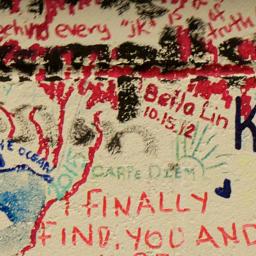 behind every "jk" is a
truth
Bella Lin
10.15.12
K
E OCEAN
2015
CARPE DIEM
I FINALLY
FIND, YOU AND